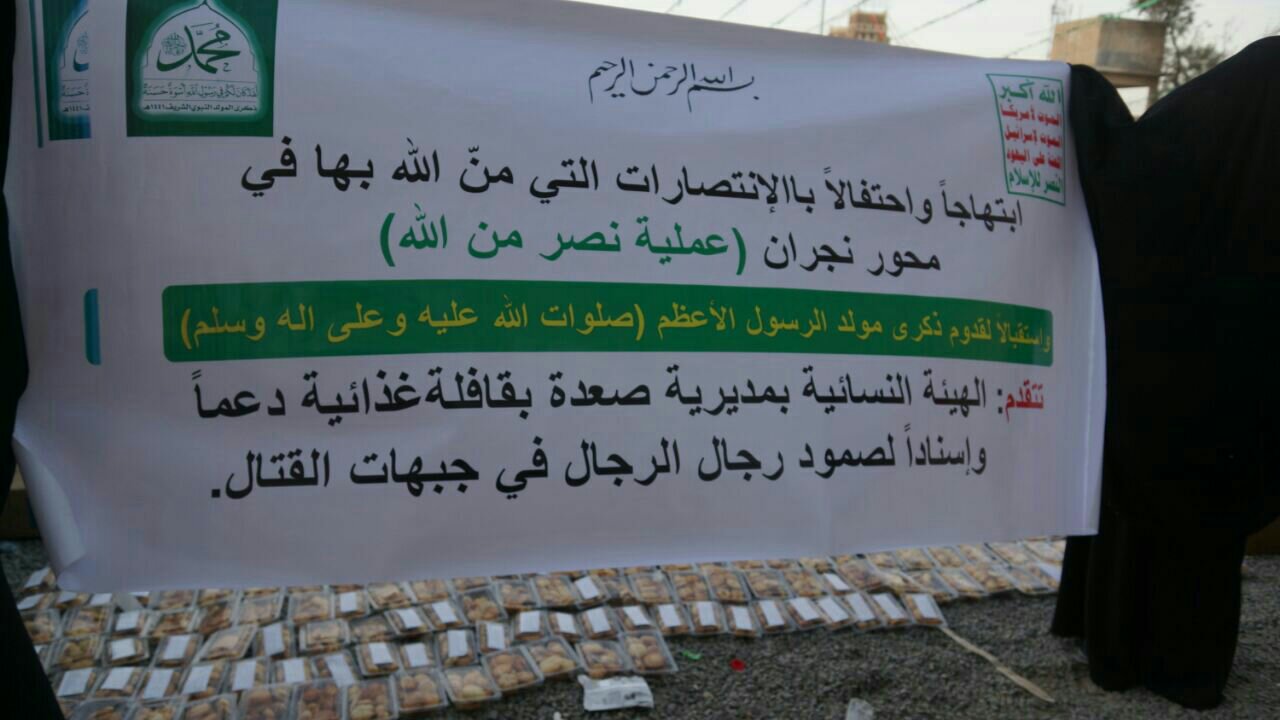 محمد
لقد كان لكم في رسول الله أسوة حسنة
ذكرى المولد النبوي الشريف ١٤٤١هـ
بسم الله الرحمن الرحيم
الله أكبر
الموت لأمريكا
الموت لإسرائيل
اللعنة على اليهود
النصر للإسلام
ابتهاجاً واحتفالاً باالإنتصارات التي منّ الله بها في
محور نجران (عملية نصر من الله)
واستقبالاً لقدوم ذكرى مولد الرسول الأعظم (صلوات الله عليه وعلى اله وسلم)
تتقدم: الهيئة النسائية بمديرية صعدة بقافلة غذائية دعماً
وإسناداً لصمود رجال الرجال في جبهات القتال.